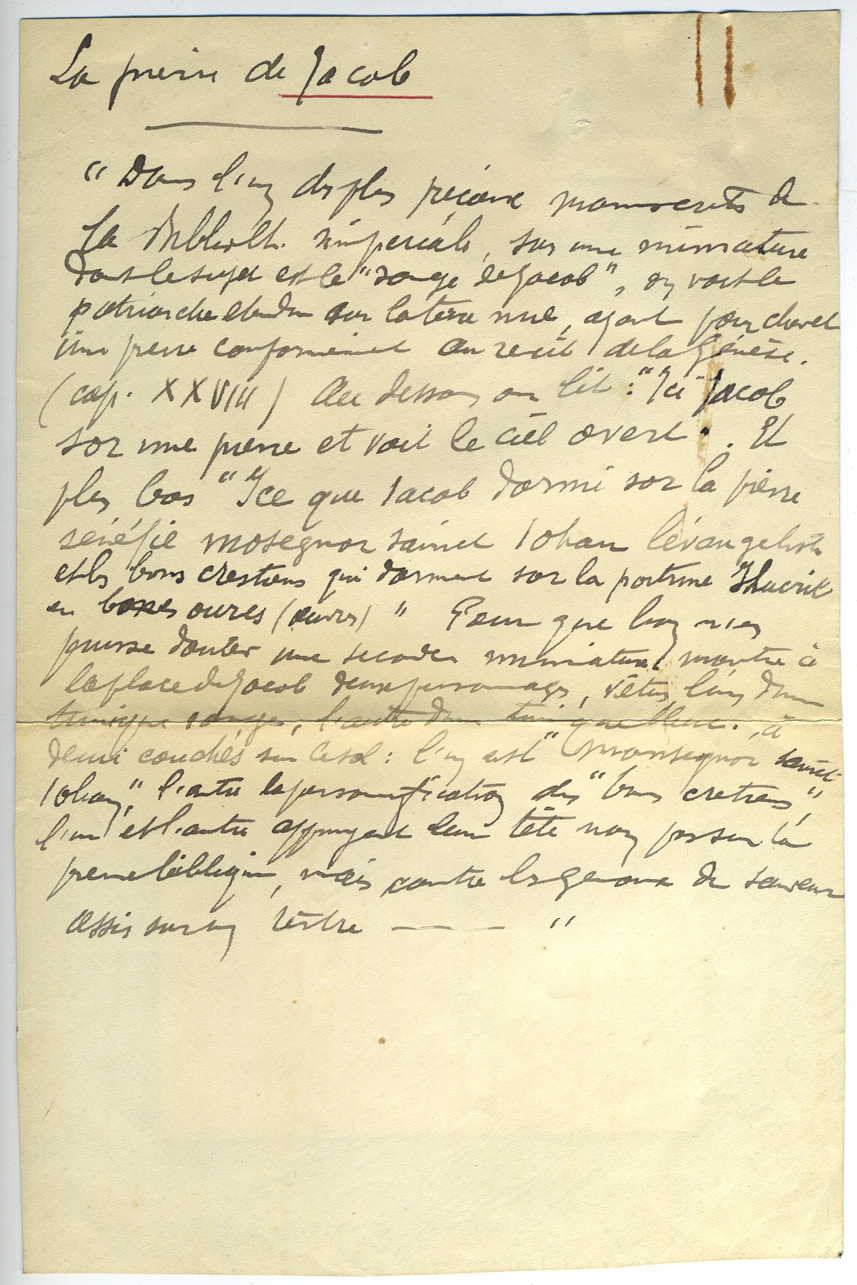 La pierre de Jacob
" Dans l'un des plus précieux manuscrits de
la Biblioth. impériale, sur une miniature
dont le sujet est le "songe de Jacob", on voit le
patriarche etendu sur la terre nue, ayant pour chevet
une pierre conformément au récit de la Génèse.
(cap. XXVIII) Au dessous on lit : "Ici Jacob
sor une pierre et voit le ciel overt". Et
plus bas "Ice que Iacob dormi sor la pierre
sénéfie mosegnor sainct Iohan lévangeliste
et les bons crestiens qui dorment sor la poitrine Jhucrist
en bones oures (œuvres) " Pour que l'on n'en
puisse douter une seconde miniature montre à
la place de Jacob deux personnages, vêtus l'un d'une
tunique rouge, l'autre d'une tunique bleue, à
demi couchés sur le sol : l'un est "monsegnor sainct
Iohan", l'autre la personnification des "bons cretiens"
l'un et l'autre appuyent leur tête non pas sur la
pierre biblique, mais contre les genoux du sauveur
assis sur un tertre — — "